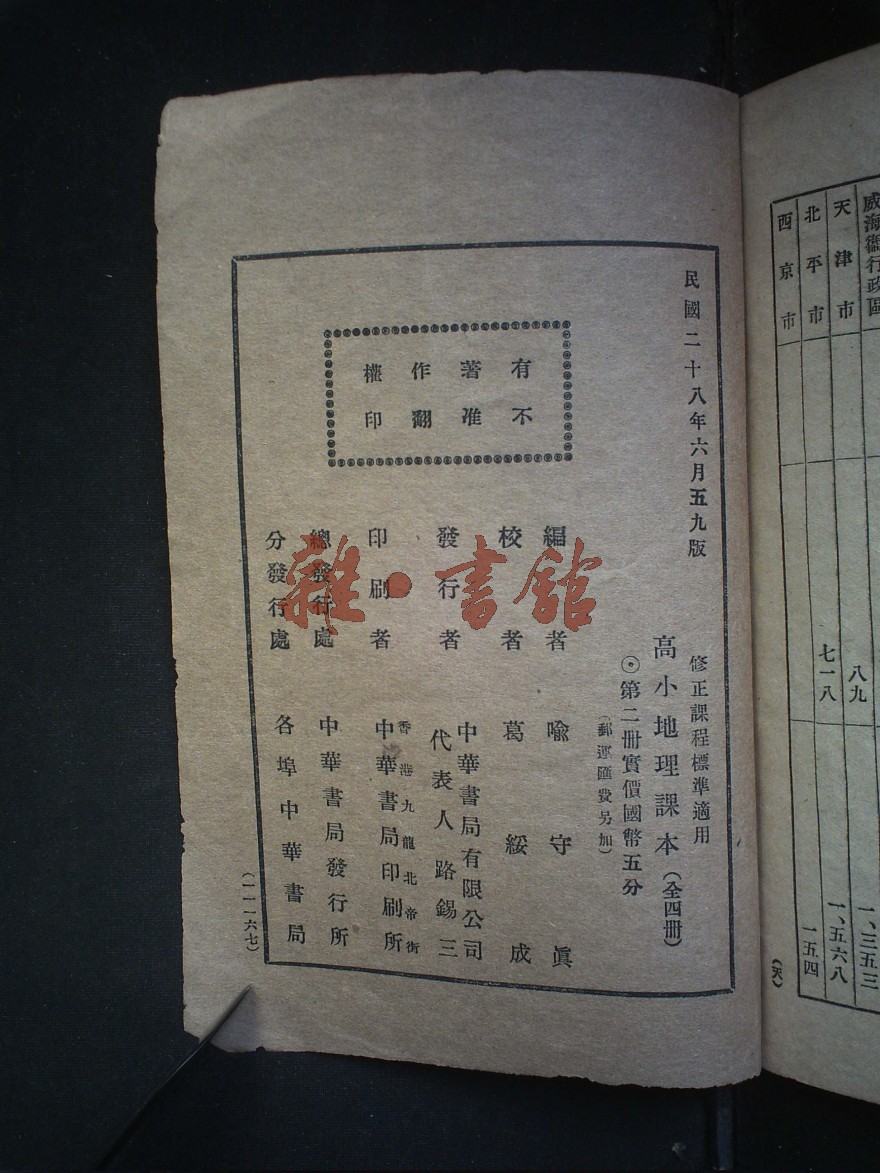 威海衞行政區
天津市 八九 一、三五三
北平市 七一八 一、五六八
西京市 一五四
(天)
民國二十八年六月五九版
修正課程標準適用
高小地理課本(全四册)
⊙第二册實價國幣五分
(郵運匯費另加)
有不
著准
作翻
權印
編者 喩守眞
校者 葛綏成
發行者 中華書局有限公司
代表人路錫三
印刷者 香港九龍北帝街
中華書局印刷所
總發行處 中華書局發行所
分發行處 各埠中華書局
(一一一六七)
雜·書館